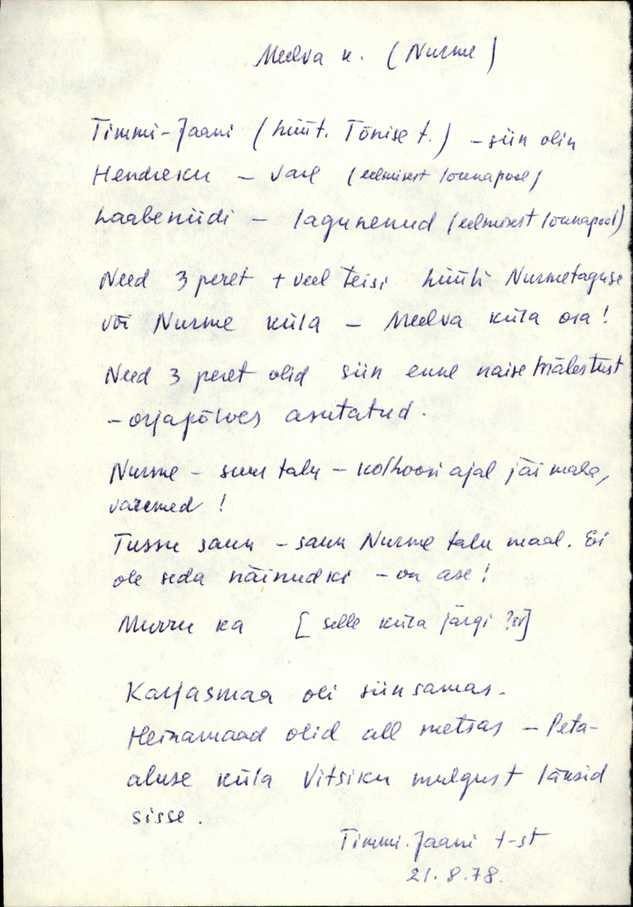 Meelva k. (Nurme)
Timmi-Jaani (hüüt. Tõnise t.) - siin olin
Hendreku - vare (eelmisest lõunapool)
Laabeniidi - lagunenud (eelmisest lõunapool)
Need 3 peret + veel teisi hüüti Nurmetaguse
või Nurme küla - Meelva küla osa!
Need 3 peret olid siin enne naise mälestust
- orjapõlves asutatud.
Nurme - suur talu - kolhoosi ajal jäi maha,
varemed!
Tussu saun - saun Nurme talu maal. Ei
ole seda näinudki - on ase!
Murru ka [selle küla järgi ?]
Karjasmaa oli siinsamas.
Heinamaad olid all metsas - Peta-
aluse küla Vitsiku mulgust läksid
sisse.
Timmi-Jaani t-st
21.8.78.